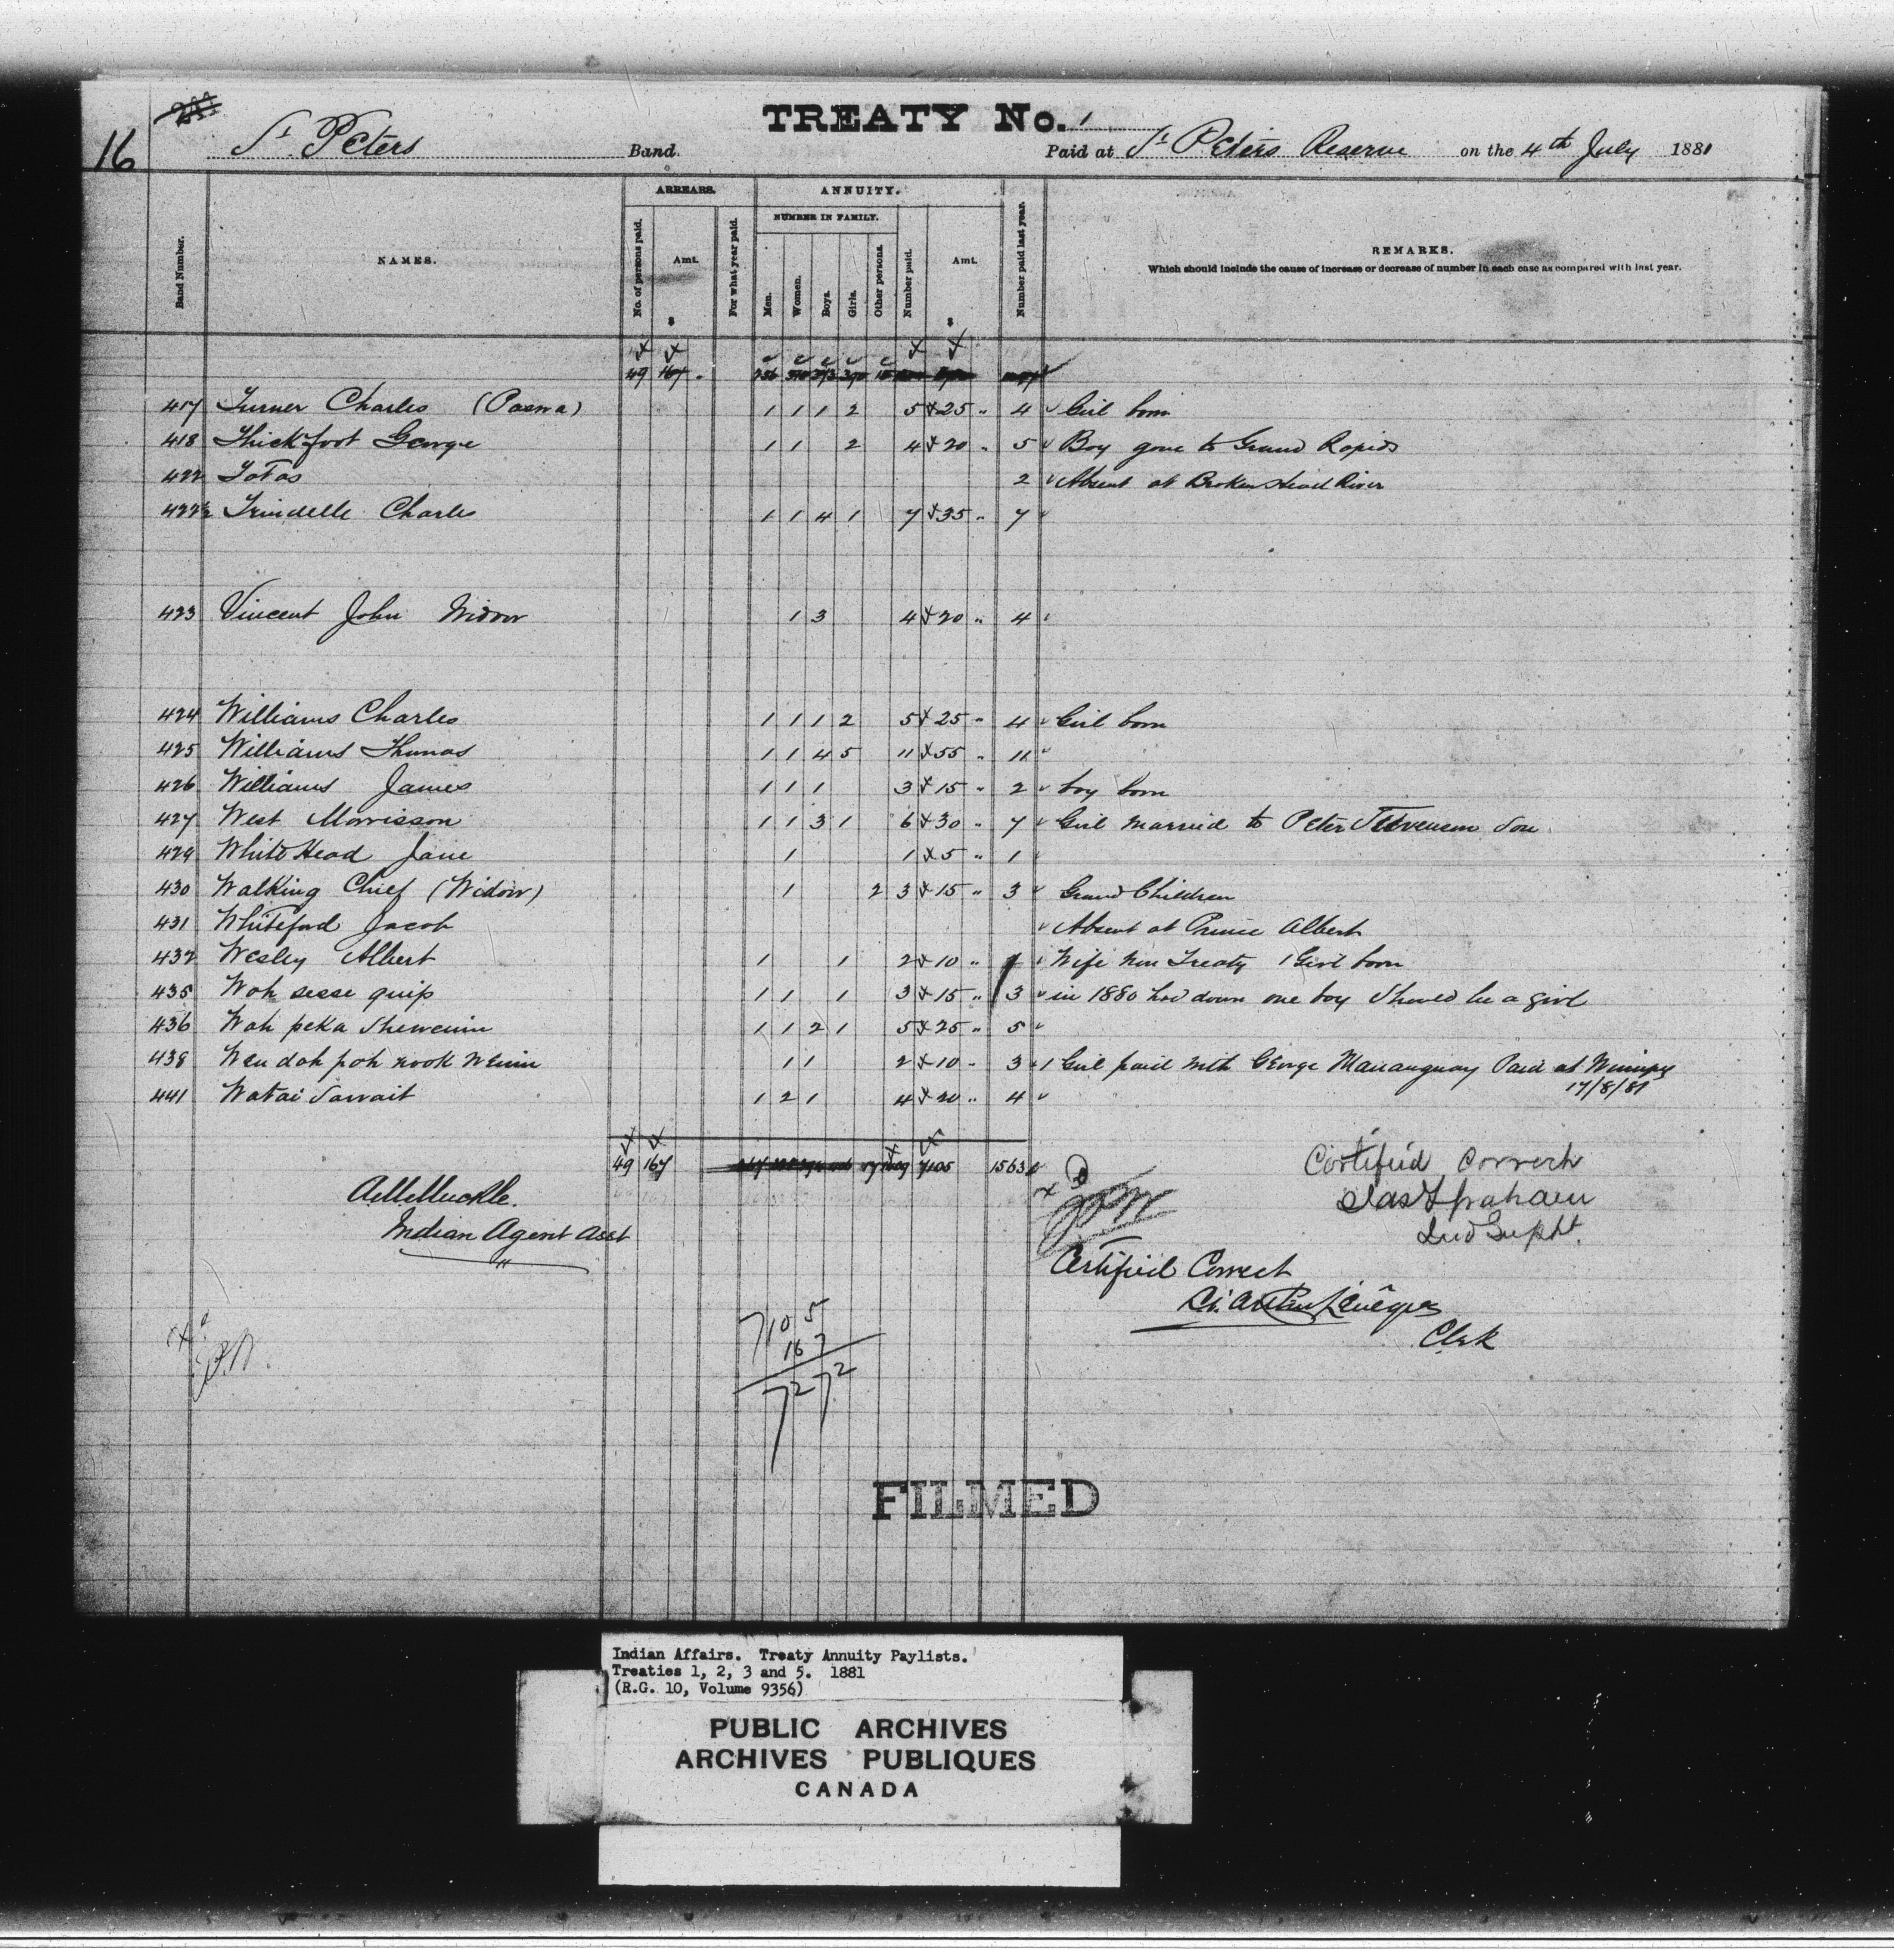 16
TREATY No. 1
St. Peters Band. Paid at St. Peters Reserve on the 4th July 1881
Band Number.
NAMES.
ARREARS.
No. of persons paid.
Amt.
$
For what year paid.
ANNUITY.
NUMBER IN FAMILY.
Men.
Women.
Boys.
Girls.
Other persons.
Number paid.
Amt.
$
Number paid last year.
REMARKS.
Which should include the cause of increase or decrease of number in each case as compared with last year.
49 167
417 Turner Charles 1 1 1 2 5 25 " 4 Girl born
418 Thickfoot George 1 1 2 4 20 " 5 Boy gone to Grand Rapids
422 2 Absent at Broken Head River
422½ Trindelle Charles 1 1 4 1 7 35 " 7
423 Vincent John Widow 1 3 4 20 " 4
424 Williams Charles 1 1 1 2 5 25 " 4 Girl born
425 Williams Thomas 1 1 4 5 11 55 " 11
426 Williams James 1 1 1 3 15 " 2 boy born
427 West Morrisson 1 1 3 1 6 30 " 7 Girl married to Peter Stevenson Son
429 White Head Jane 1 1 5 " 1
430 Walking Chief (Widow) 1 2 3 15 " 3 Grand Children
431 Whiteford Jacob Absent at Prince Albert
432 Wesley Albert 1 1 2 10 " 1 Wife Non Treaty 1 Girl born
435 Wah sesse quip 1 1 1 3 15 " 3 in 1880 had down one boy Should be a girl
436 Wah peka Shewenin 1 1 2 1 5 25 " 5
438 Wen dah pah nook wenin 1 1 2 10 - 3 1 Girl paid with George Manauguay Paid at Winnipeg
17/8/81
441 Watai Sawait 1 2 1 4 20 " 4
49 167 7105 1563
Certified Correct
A. M. Muckle.
Jas Graham
Indian Agent
Ind Supt.
Certified Correct
Clerk
7105
167
7272
FILMED
Indian Affairs. Treaty Annuity Paylists.
Treaties 1, 2, 3 and 5. 1881
(R.G. 10, Volume 9356)
PUBLIC ARCHIVES
ARCHIVES PUBLIQUES
CANADA